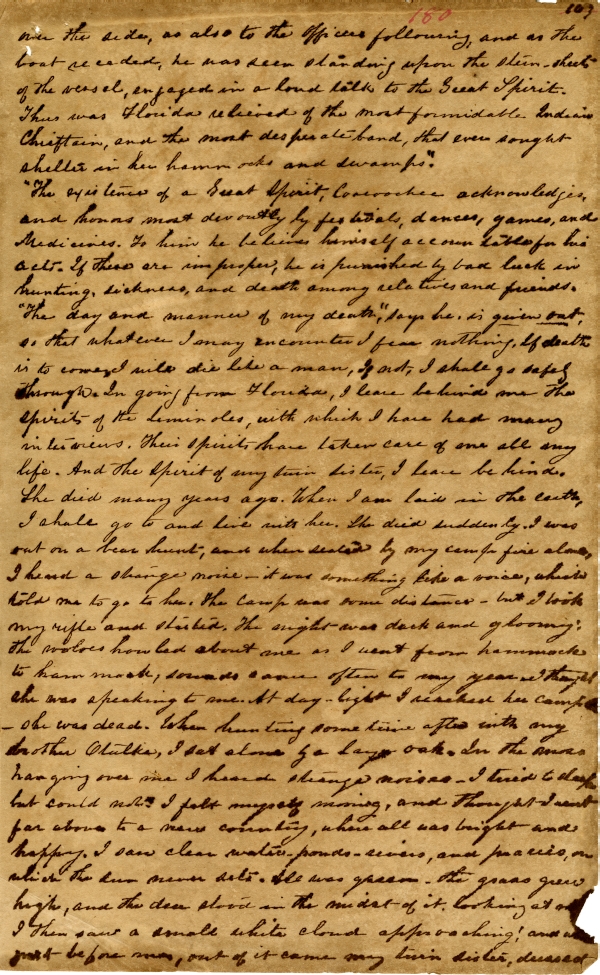 180
103
over the side, as also to the officers following, and as the
boat receded, he was seen standing upon the stern-sheets
of the vessel, engaged in a loud talk to the Great Spirit.
Thus was Florida relieved of the most formidable Indian
Chieftain, and the most desperate band, that ever sought
shelter in her hammocks and swamps".
"The existence of a Great Spirit, Coacoochee acknowledges,
and honors most devoutly by festivals, dances, games, and
Medicines. To him he believes himself accountable for his
acts. If these are improper, he is punished by bad luck in
hunting, sickness, and death among relatives and friends.
"The day and manner of my death", says he, is given out,
so that whatever I may encounter I fear nothing. If death
is to come, I will die like a man, If not, I shall go safely
through. In going from Florida, I leave behind me the
spirits of the Seminoles, with which I have had many
interviews. Their spirits have taken care of me all my
life. And the Spirit of my twin sister, I leave behind.
She died many years ago. When I am laid in the earth,
I shall go to and live with her. She died suddenly. I was
out on a bear hunt, and when seated by my camp fire alone,
I heard a strange noise - it was something like a voice, which
told me to go to her. The camp was some distance - but I took
my rifle and started. The night was dark and gloomy:
the wolves howled about me as I went from hammock
to hammock, sounds came often to my year - I thought
she was speaking to me. At day-light I reached her camp
- she was dead. When hunting some time after with my
brother Otulke, I sat alone by a large oak. In the moss
hanging over me I heard strange noises - I tried to sleep
but could not. I felt myself moving, and thought I went
far above to a new country, where all was bright and
happy. I saw clear water-ponds - rivers, and prairies, on
which the sun never sets. All was green - the grass grew
high, and the deer stood in the midst of it looking at
I then saw a small white cloud approaching! and
just before me, out of it came my twin sister, dressed